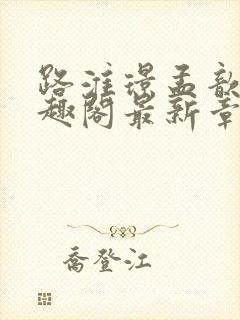 路淮璟孟歆
趣阁最新章
乔登江